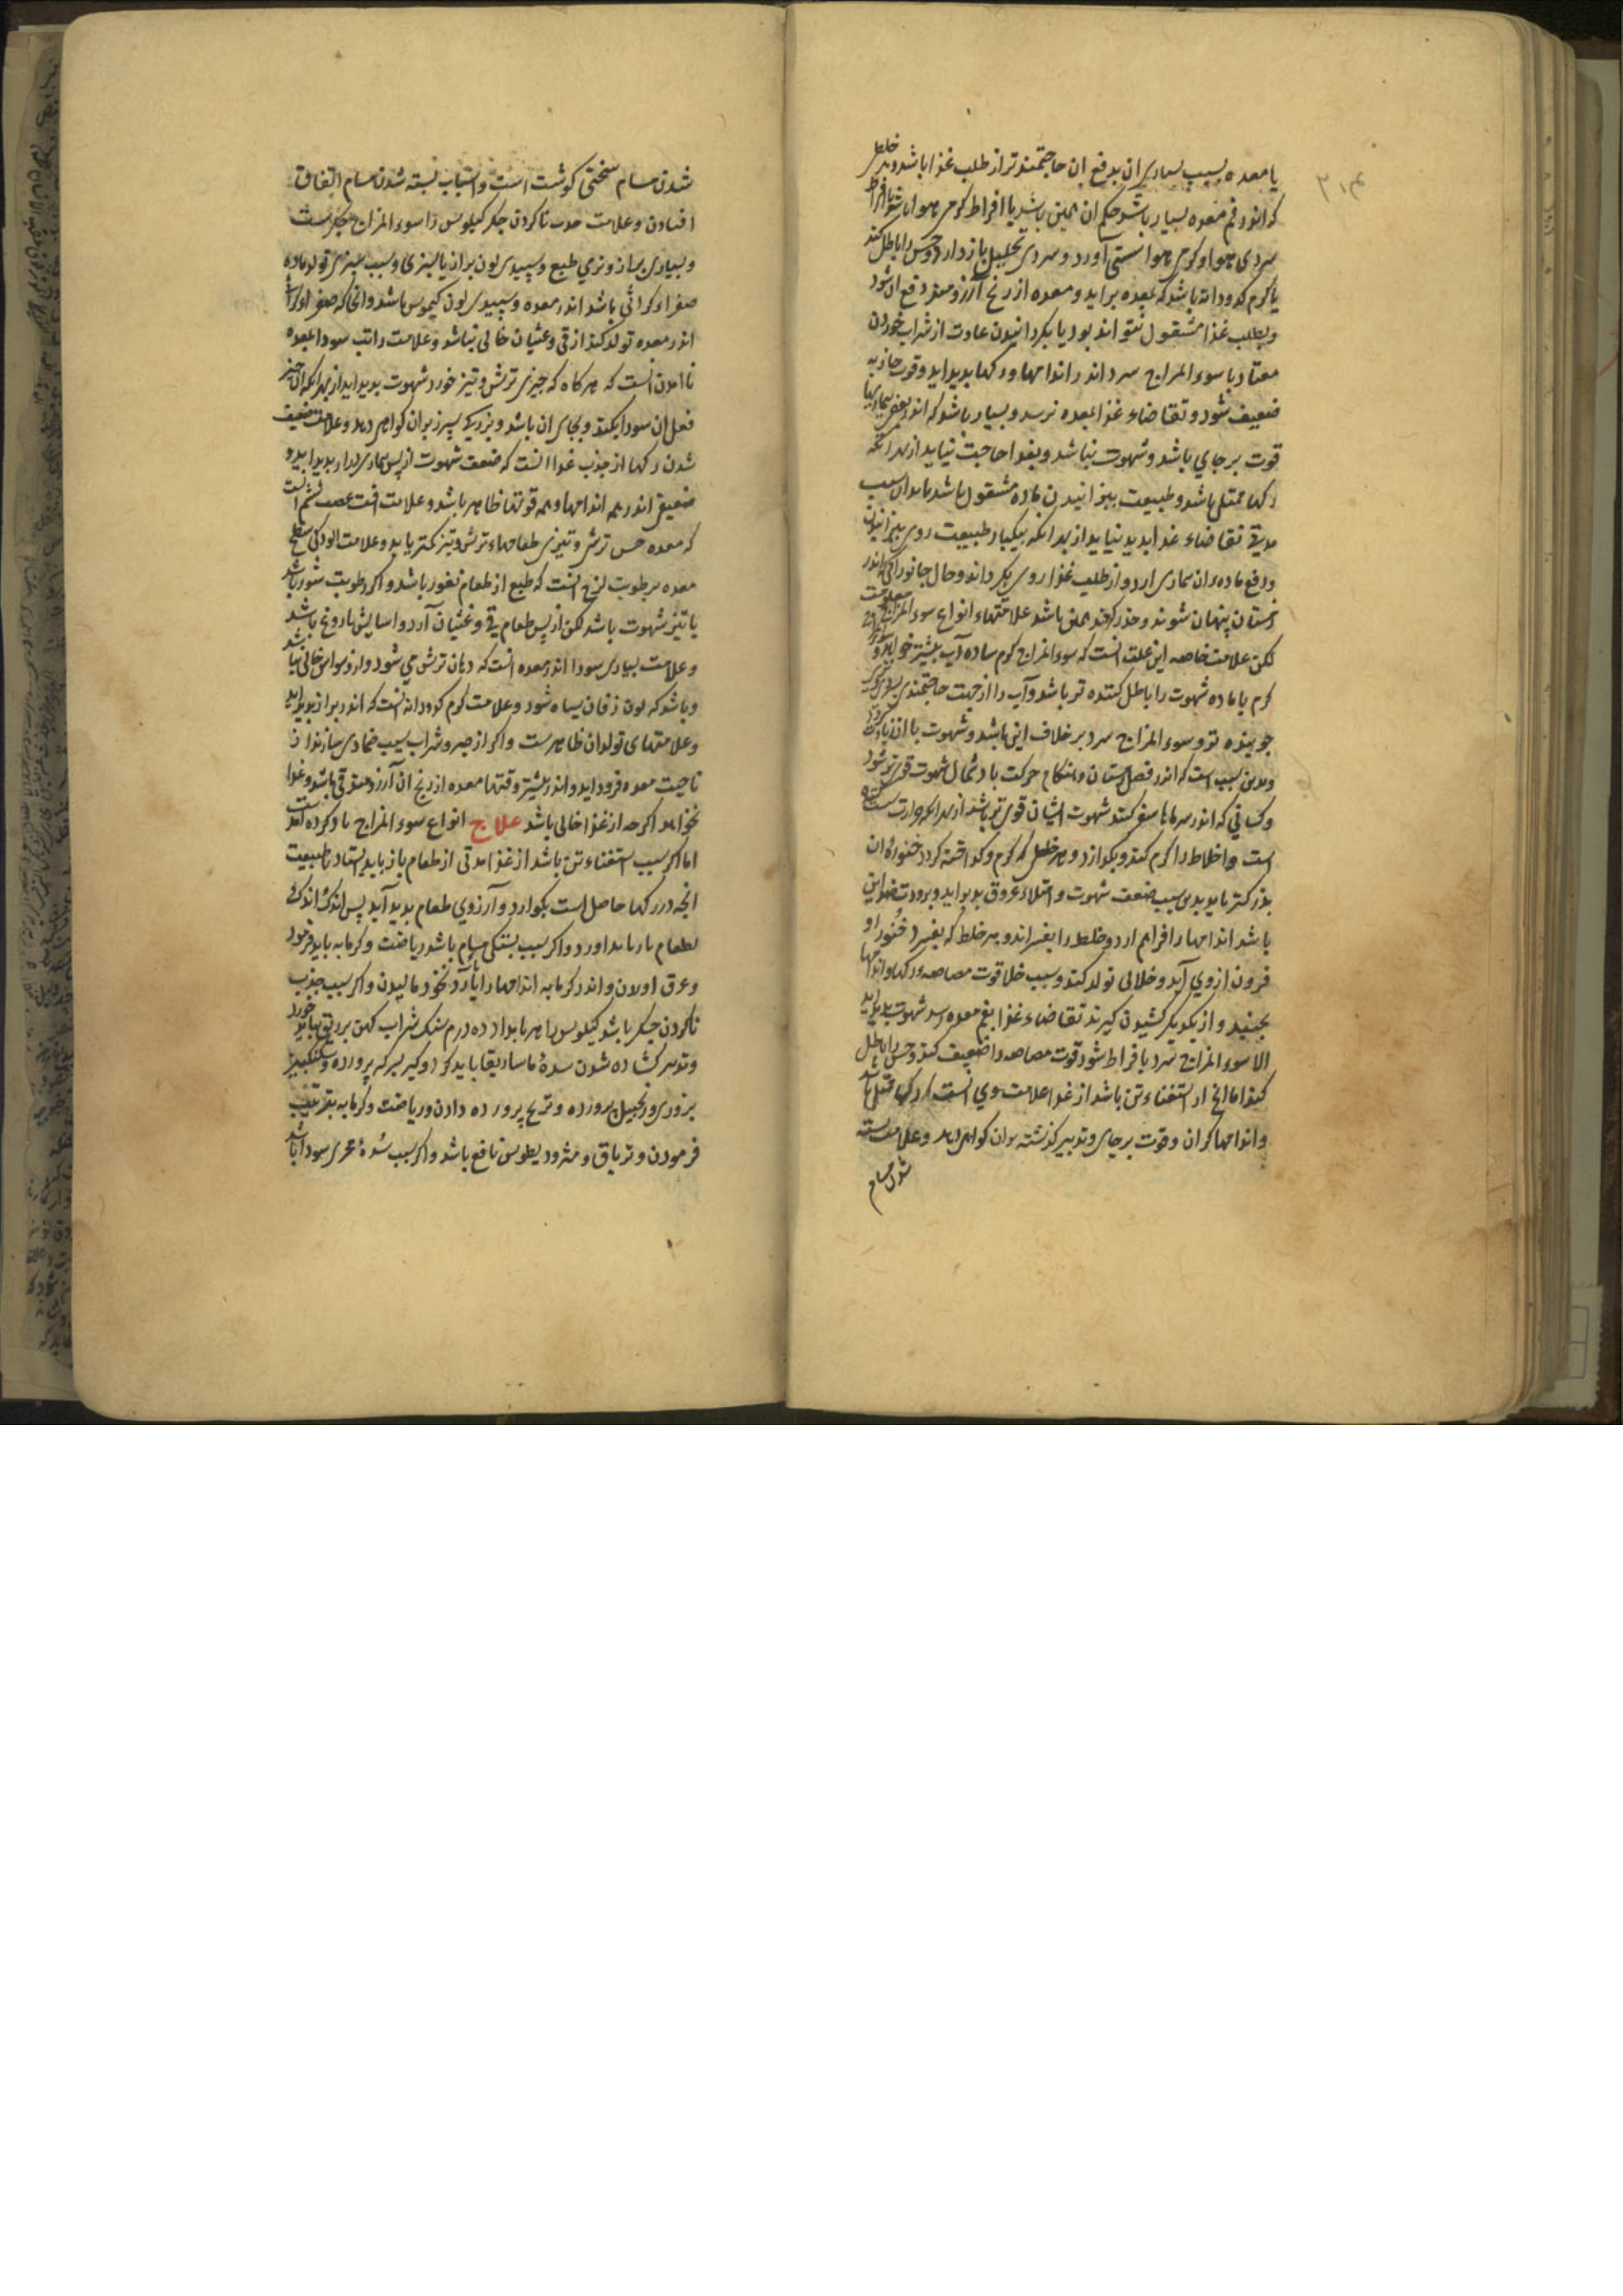 ۳۱۴
یا معده بسبب بسیاری ان بدفع ان حاجتمندتر از طلب غذا باشد و هر خلط
که اندر فم معده بسیار باشد حکم ان همین باشد یا افراط کرمی هوا باشد یا افراط
سردی هوا و کرمی هوا سستی آورد و سردی تحلیل باز دارد و حس را باطل کند
یا کرم کدودانه باشد که بمعده براید و معده از رنج آرزومند دفع ان شود
و بطلب غذا مشغول نتواند بود یا بکردانیدن عادت از شراب خوردن
معتاد یا سوء المزاج سرد اندر اندامها و رکها بدید اید و قوت جاذبه
ضعیف شود و تقاضاء غذا بمعده نرسد و بسیار باشد که اندر بعضی بیماریها
قوت برجای باشد و شهوت نباشد و بغذا حاجت نیاید از بهر انکه
رکها ممتلی باشد و طبیعت ببزانیدن ماده مشغول باشد بدان سبب
مدتی تقاضاء غذا بدید نیاید از بهر انکه بیکبار طبیعت روی ببزانیدن
و دفع ماده ان بیماری ارد و از طلب غذا روی بکرداند و حال جانورانی که اندر
زمستان پنهان شوند و حذر کنند همین باشد علامتهاء انواع سوء المزاج معلومست
لکن علامت خاصه این علت انست که سوء المزاج کرم ساده آب بیشتر خواهد و
کرم با ماده شهوت را باطل کننده تر باشد و آب را از جهت حاجتمندی
جوینده تر و سوء المزاج سرد بر خلاف این باشد و شهوت با ان زیادت کردد
و بدین سبب است که اندر فصل زمستان و هنکام حرکت باد شمال شهوت قوی تر شود
و کسانی که اندر سرماها سفر کنند شهوت ایشان قوی تر باشد از بهر انکه حرارت سست کننده
است و اخلاط را کرم کند و بکدازد و هر خلطی که کرم و کداخته کردد خنورهٔ ان
بزرکتر باید بدین سبب ضعف شهوت و امتلاء عروق بدید اید و برودت ضد این
باشد اندامها را فراهم ارد و خلط را بفسراند و هر خلط که بفسرد خنور او
فزون از وی آید و خلائی تولد کند و بسبب خلا قوت مصاصه رکها و اندامها
بجنبد و از یکدیکر کشیدن کیرند تقاضاء غذا بفم معده رسد شهوت بدید اید
الا سوء المزاج سرد بافراط شود قوت مصاصه را ضعیف کند و حس را باطل
کند اما انچ از استغناء تن باشد از غذا علامت وی انست که رکها ممتلی باشد
و اندامها کران و قوت برجای و تدبیر کذشته بدان کواهی دهد و علامت بسته
شدن مسام
شدن مسام سختی کوشت است و اسباب بسته شدن مسام اتفاق
افتادن و علامت جذب ناکردن جکر کیلوس را سوء المزاج جکرست
و بسیاری براز و نرمی طبع و سپیدی لون براز یا سبزی و سبب سبزی تولد ماده
صفراء کراثی باشد اندر معده و سپیدی لون کیموس باشد و انجا که صفراء کراثی
اندر معده تولد کند از قی و غثیان خالی نباشد و علامت راتب سودا بمعده
ناامدن انست که هرکاه که چیزی ترش و تیز خورد شهوت بدید اید از بهر انکه ان چیز
فعل ان سودا بکند و بجای ان باشد و بزرکی سپرز بدان کواهی دهد و علامت ضعیف
شدن رکها از جذب غذا انست که ضعف شهوت از پس بیماری دراز بدید اید و
ضعیفی اندر همه اندامها و همه قوتها ظاهر باشد و علامت افت عصب ششم انست
که معده حس ترشی و تیزی طعامهاء ترش و تیز کمتر یابد و علامت الودکی سطح
معده برطوبت لزج انست که طبع از طعام نفور باشد و اکر رطوبت شور باشد
یا تیز شهوت باشد لکن از پس طعام قی و غثیان آرد و اسایش باروغ باشد
و علامت بسیاری سودا اندر معده انست که دهان ترش می شود و از وسواس خالی نباشد
و باشد که لون زفان سیاه شود و علامت کرم کدودانه انست که اندر براز بدید اید
و علامتهای تولد ان ظاهرست و اکر از صبر و شراب سیب ضمادی سازند از
ناحیت معده فرود اید و اندر بیشتر وقتها معده از رنج ان آرزومند قی باشد و غذا
نخواهد اکرچه از غذا خالی باشد علاج انواع سوء المزاج یاد کرده امدست
اما اکر سبب استغناء تن باشد از غذا مدتی از طعام باز باید ایستاد تا طبیعت
انچه در رکها حاصل است بکوارد و آرزوی طعام بدید آید پس اندک اندک
بطعام باز باید اورد و اکر سبب بستکی مسام باشد ریاضت و کرمابه باید فرمود
و عرق اوردن و اندر کرمابه اندامها را بآرد نخود مالیدن و اکر سبب جذب
ناکردن جکر باشد کیلوس را هر بامداد ده درم سنک شراب کهن بر ریق باید خورد
و تدبیر کشاده شدن سدهٔ ماساریقا باید کرد و کبر بسرکه پرورده و سکنکبین
بزوری و زنجبیل پرورده و ترنج پرورده دادن و ریاضت و کرمابه بترتیب
فرمودن و تریاق و مثرودیطوس نافع باشد و اکر سبب سدهٔ مجری سودا باشد